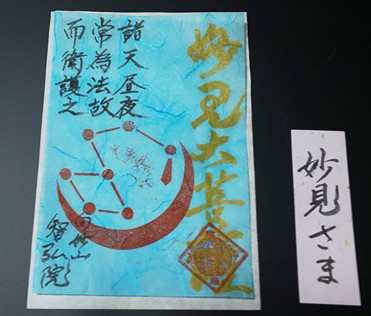 妙見大菩薩
諸天昼夜
常為法故
而衛護之
智弘院
妙見さま